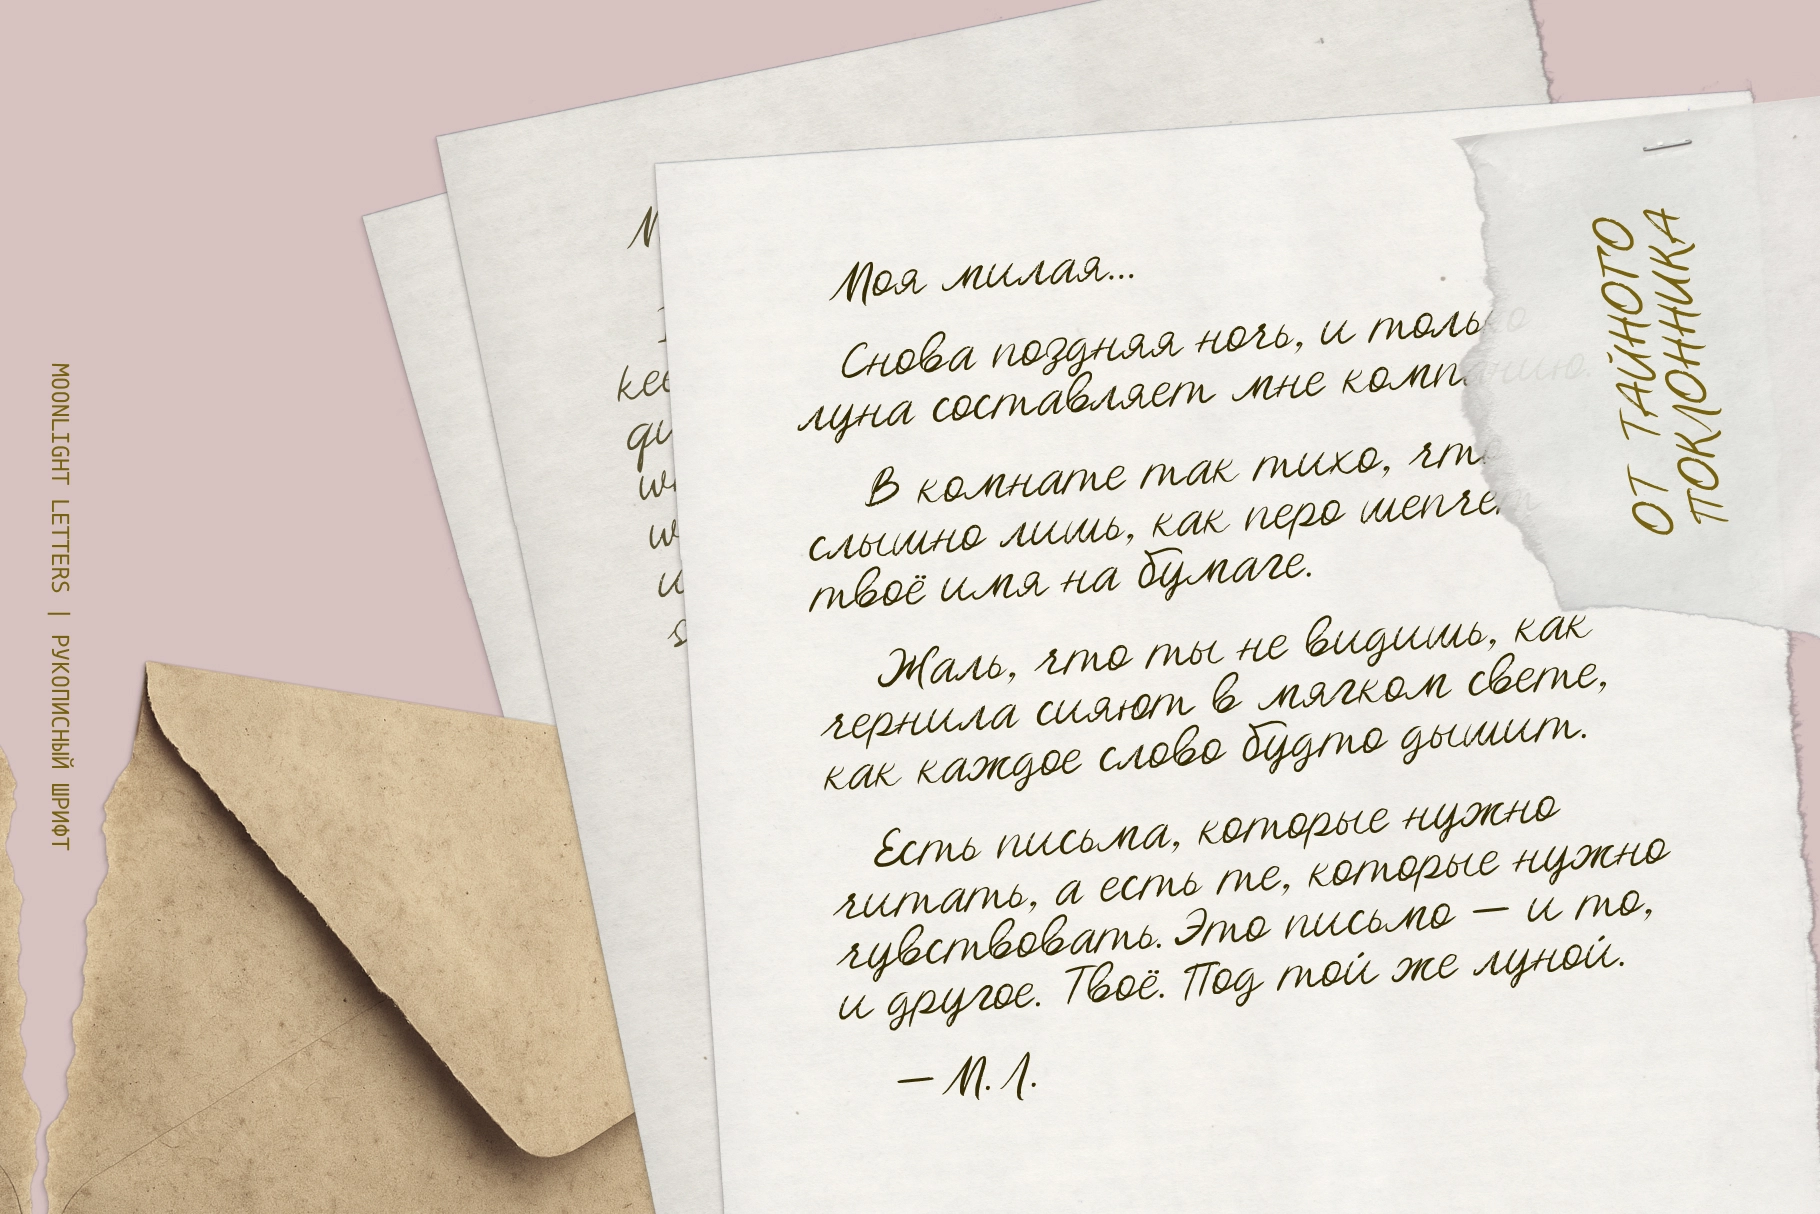 MOONLIGHT LETTERS | РУКОПИСНЫЙ ШРИФТ
kee
Моя милая...
Снова поздняя ночь, и только
луна составляет мне компанию.
В комнате так тихо, что
слышно лишь, как перо шепчет
твоё имя на бумаге.
Жаль, что ты не видишь, как
чернила сияют в мягком свете,
как каждое слово будто дышит.
Есть письма, которые нужно
читать, а есть те, которые нужно
чувствовать. Это письмо — и то,
и другое. Твоё. Под той же луной.
— М. Л.
ОТ ТАЙНОГО
ПОКЛОННИКА